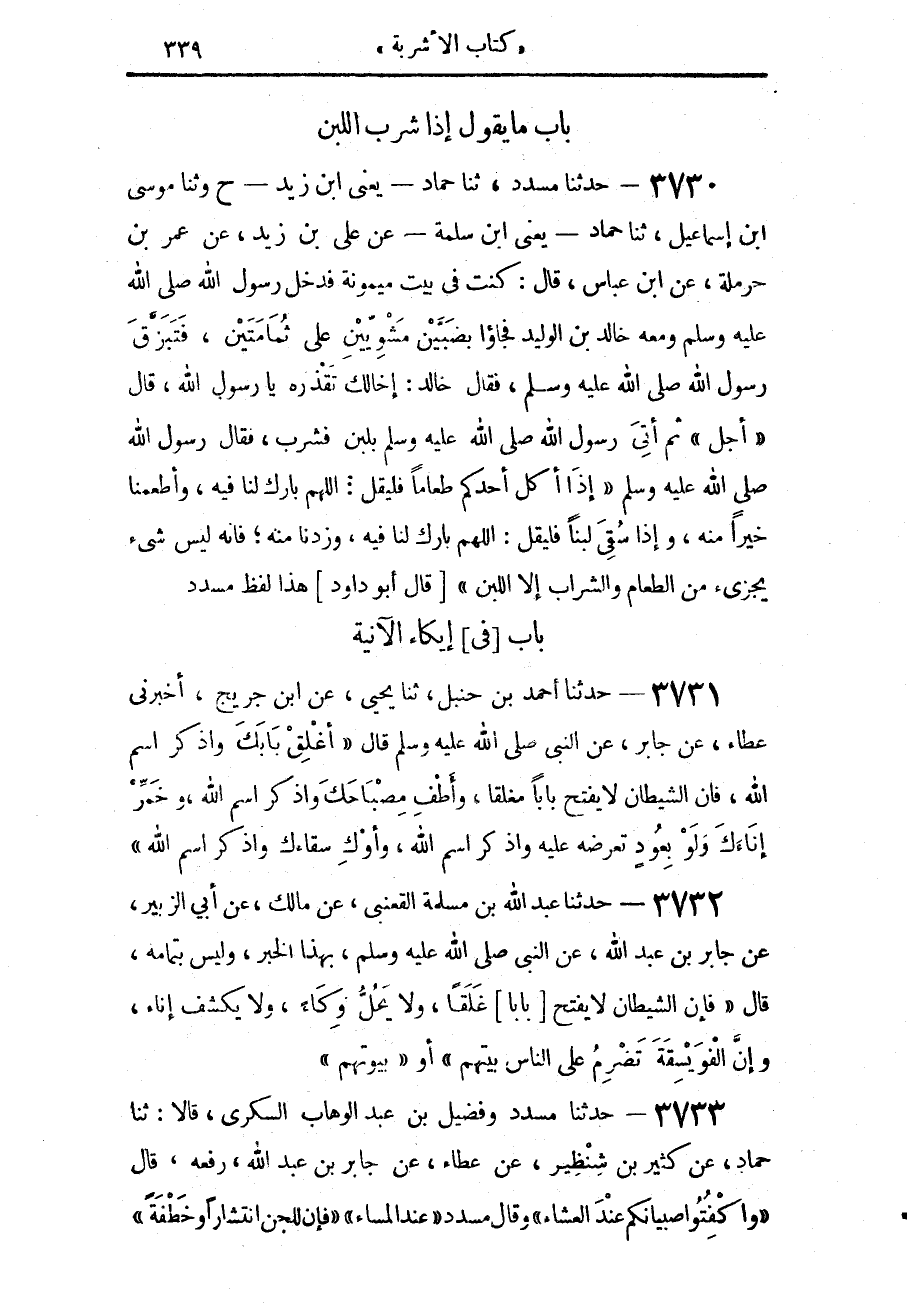 « كتاب الأشربة » ٣٣٩
باب ما يقول إذا شرب اللبن
٣٧٣٠ — حدثنا مسدد ، ثنا حماد — يعنى ابن زيد — ح وثنا موسى
ابن إسماعيل ، ثنا حماد — يعنى ابن سلمة — عن على بن زيد ، عن عمر بن
حرملة ، عن ابن عباس ، قال : كنت فى بيت ميمونة فدخل رسول الله صلى الله
عليه وسلم ومعه خالد بن الوليد فجاؤا بضَبَّيْنِ مَشْوِيَّيْنِ على ثُمَامَتَيْنِ ، فَتَبَزَّقَ
رسول الله صلى الله عليه وسلم ، فقال خالد : إخالك تَقْذره يا رسول الله ، قال
« أجل » ثم أتِىَ رسول الله صلى الله عليه وسلم بلبن فشرب ، فقال رسول الله
صلى الله عليه وسلم « إذَا أكل أحدكم طعاماً فليقل : اللهم بارك لنا فيه ، وأطعمنا
خيراً منه ، وإذا سُقِىَ لبناً فليقل : اللهم بارك لنا فيه ، وزدنا منه ؛ فانه ليس شىء
يجزىء من الطعام والشراب إلا اللبن » [ قال أبو داود ] هذا لفظ مسدد
باب [فى] إيكاء الآنية
٣٧٣١ — حدثنا أحمد بن حنبل ، ثنا يحيى ، عن ابن جريج ، أخبرنى
عطاء ، عن جابر ، عن النبى صلى الله عليه وسلم قال « أغْلِقْ بَابَكَ واذكر اسم
الله ، فان الشيطان لايفتح باباً مغلقا ، وأَطْفِ مِصْبَاحَكَ واذكر اسم الله ، و خَمِّرْ
إنَاءَكَ وَلَوْ بِعُودٍ تعرضه عليه واذكر اسم الله ، وأوْكِ سقاءك واذكر اسم الله »
٣٧٣٢ — حدثنا عبد الله بن مسلمة القعنبى ، عن مالك ، عن أبي الزبير ،
عن جابر بن عبد الله ، عن النبى صلى الله عليه وسلم ، بهذا الخبر ، وليس بتمامه ،
قال « فإن الشيطان لايفتح [ بابا ] غَلَقاً ، ولا يَحُلُّ وِكَاءً ، ولا يكشف إناء ،
وإنَّ الْفُوَيْسِقَةَ تَضْرِمُ على الناس بيتهم » أو « بيوتهم »
٣٧٣٣ — حدثنا مسدد وفضيل بن عبد الوهاب السكرى ، قالا : ثنا
حماد ، عن كثير بن شِنْظِير ، عن عطاء ، عن جابر بن عبد الله ، رفعه ، قال
« واكْفِتُوا صبيانكم عنْدَ العشاء » وقال مسدد « عند المساء » « فإن للجن انتشاراً وخَطْفَةً »